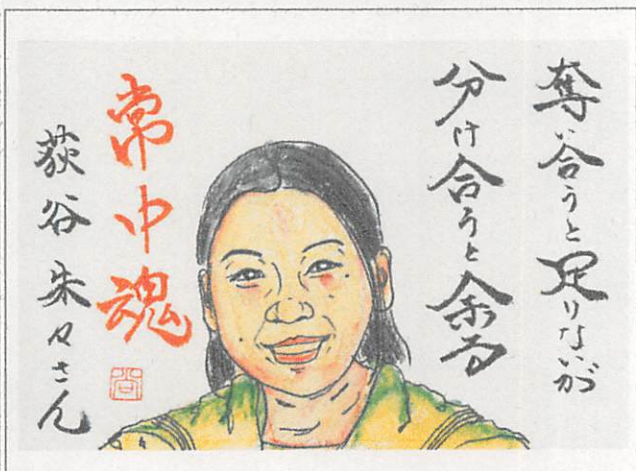 奪い合うと足りないが
分け合うと余る
常中魂
荻谷朱々さん
尚